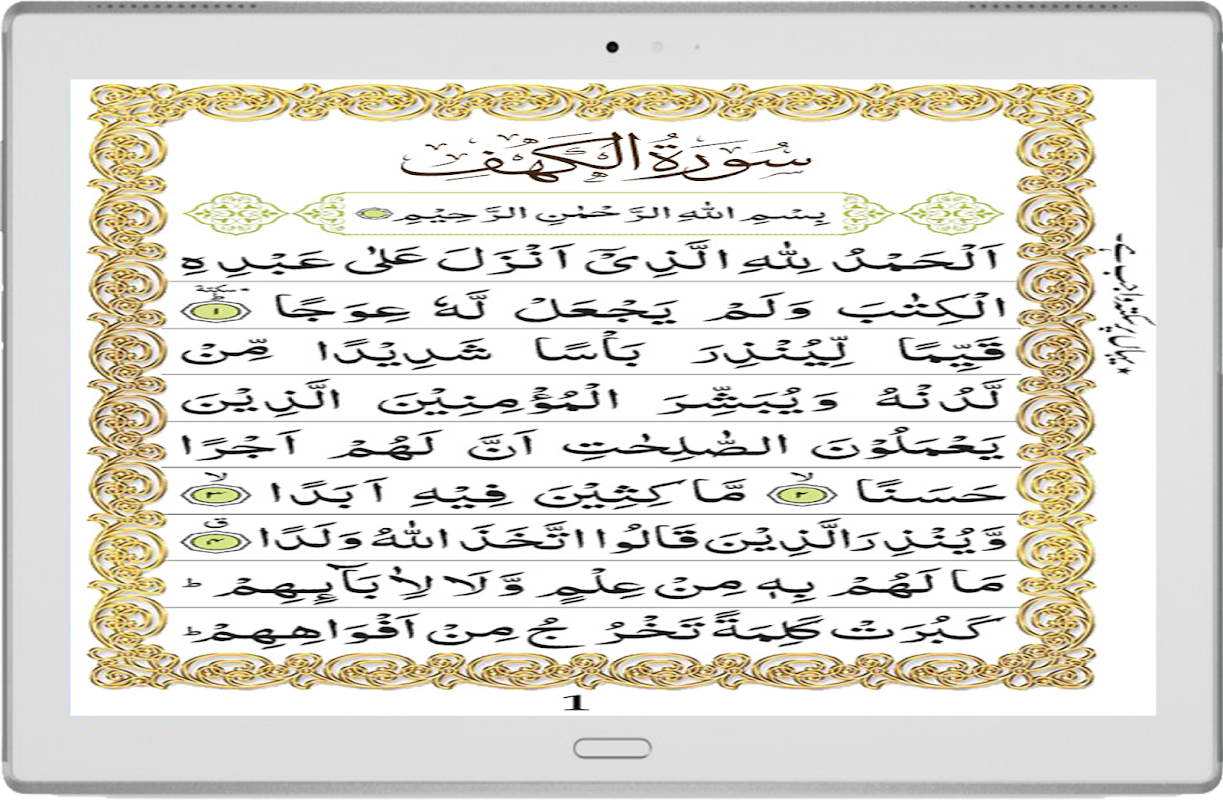 سُوۡرَةُ الۡكَهۡفِ
بِسْمِ اللّٰهِ الرَّحْمٰنِ الرَّحِيْمِ
اَلْحَمْدُ لِلّٰهِ الَّذِىْٓ اَنْزَلَ عَلٰى عَبْدِهِ
الْكِتٰبَ وَلَمْ يَجْعَلْ لَّهٗ عِوَجًا ۜ سكتة ١
قَيِّمًا لِّيُنْذِرَ بَاْسًا شَدِيْدًا مِّنْ
لَّدُنْهُ وَيُبَشِّرَ الْمُؤْمِنِيْنَ الَّذِيْنَ
يَعْمَلُوْنَ الصّٰلِحٰتِ اَنَّ لَهُمْ اَجْرًا
حَسَنًا ۙ ٢ مَّاكِثِيْنَ فِيْهِ اَبَدًا ۙ ٣
وَّيُنْذِرَ الَّذِيْنَ قَالُوا اتَّخَذَ اللّٰهُ وَلَدًا ق ٤
مَا لَهُمْ بِهٖ مِنْ عِلْمٍ وَّلَا لِاٰبَآىِٕهِمْ ؕ
كَبُرَتْ كَلِمَةً تَخْرُجُ مِنْ اَفْوَاهِهِمْ ؕ
1